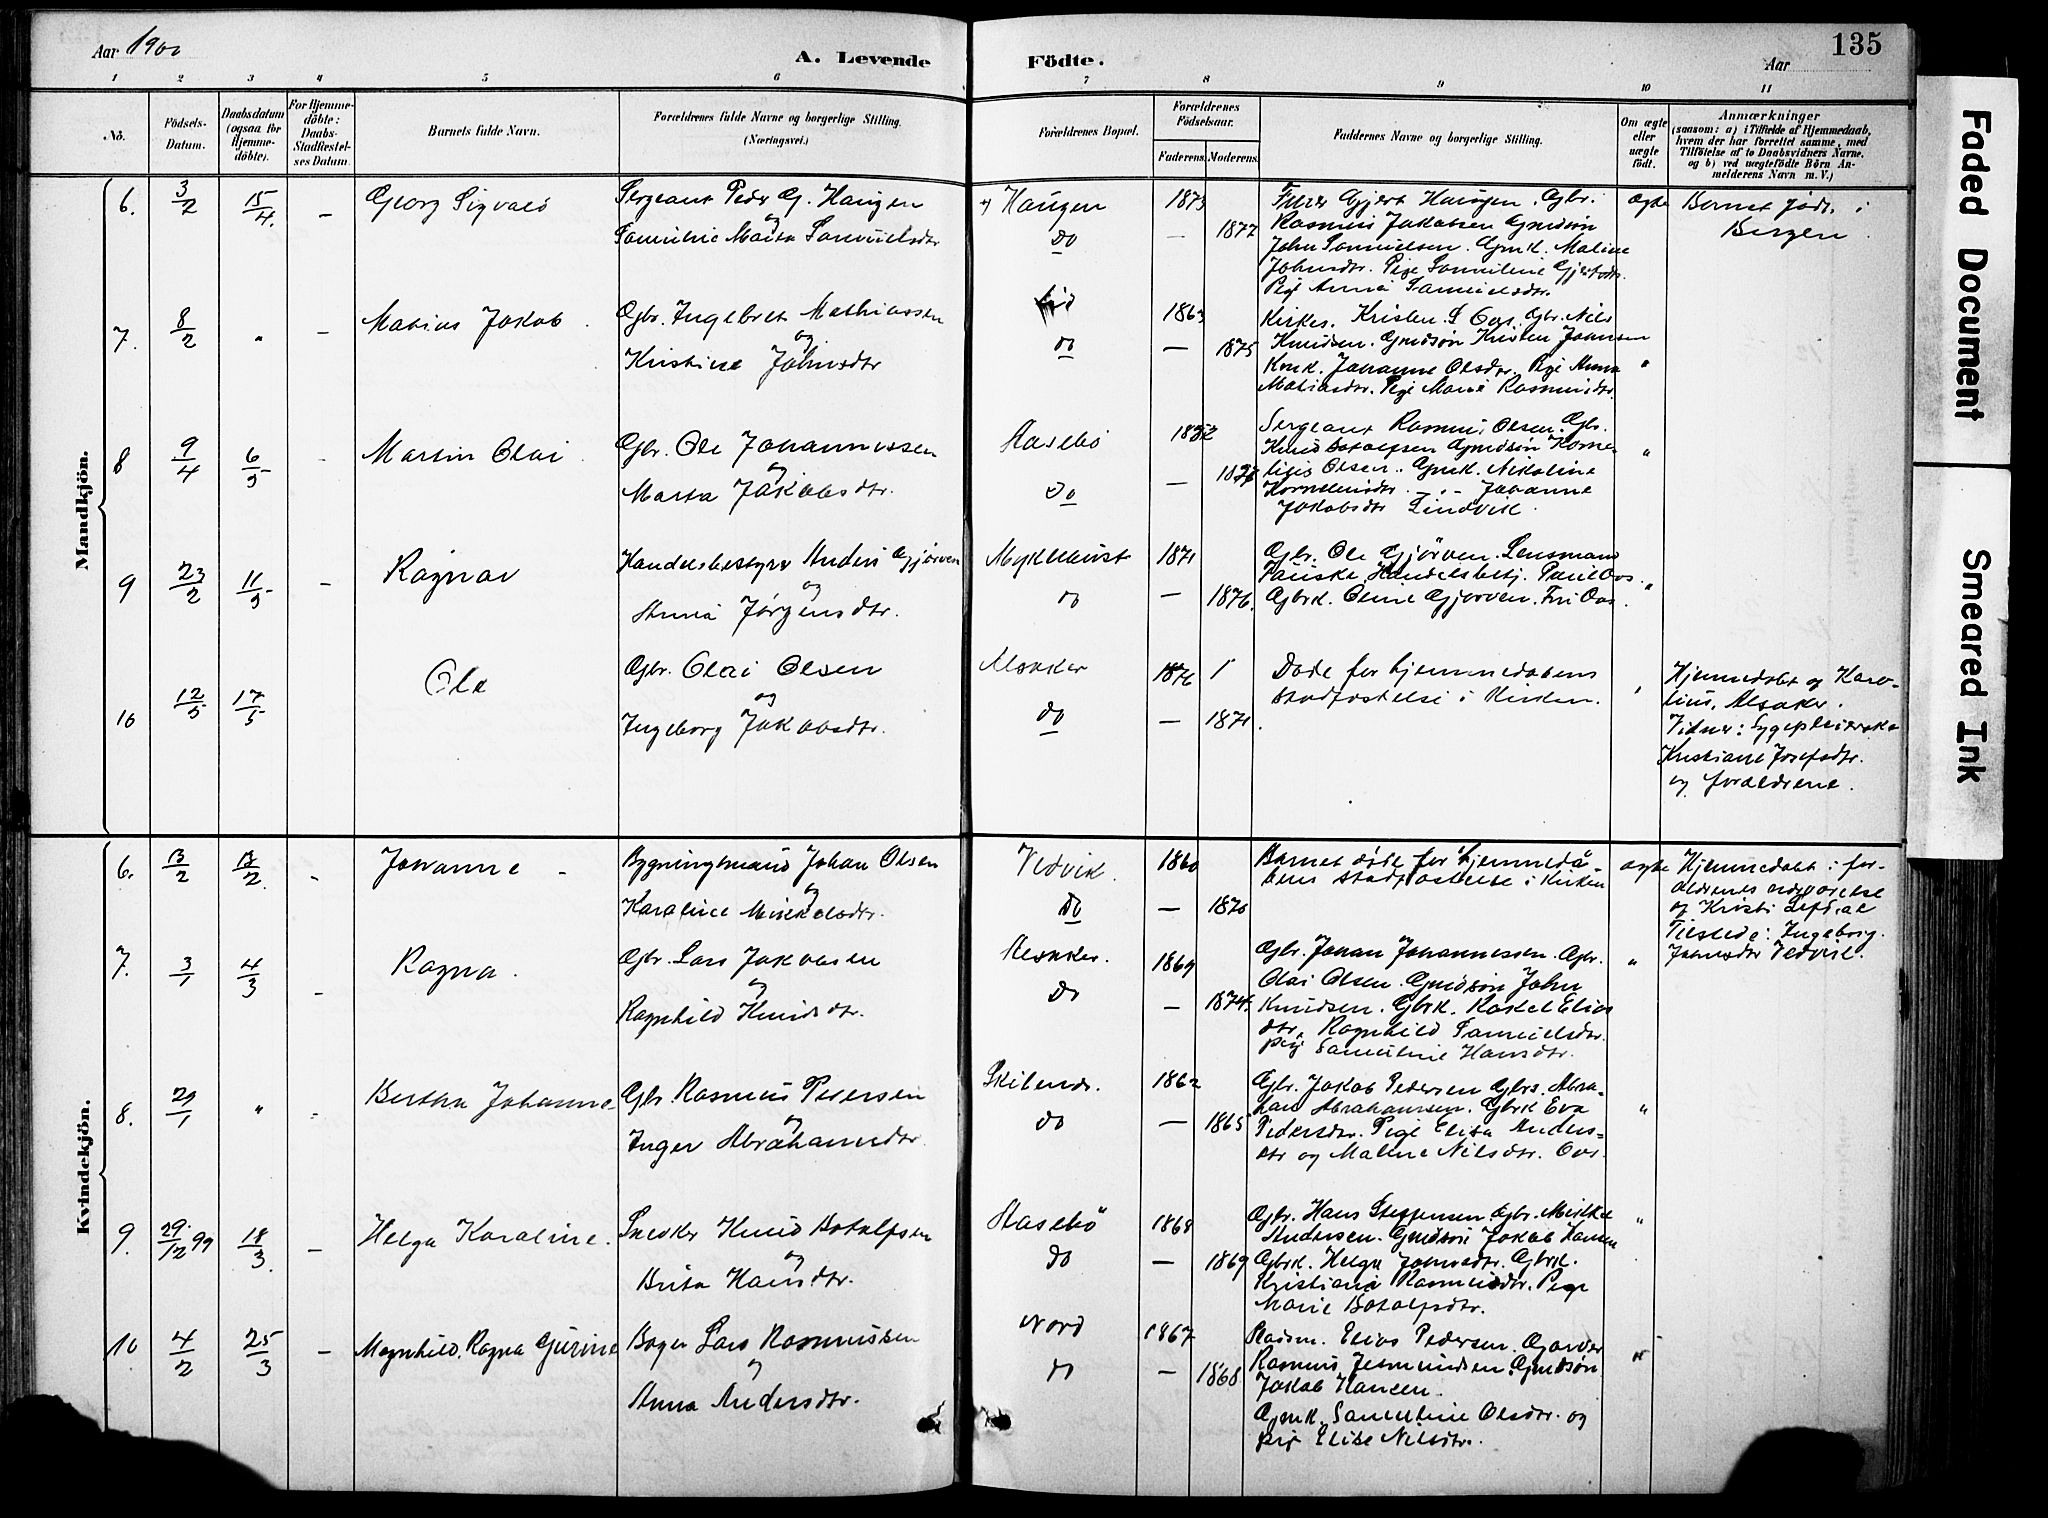 Aar 1900
A. Levende Födte.
Aar
135
1 2 3 4 5 6 7 8 9 10 11
No.
Födsels-Datum.
Daabsdatum (ogsaa for Hjemme-døbte).
For Hjemme-døbte: Daabs-Stadfæstel-ses Datum.
Barnets fulde Navn.
Forældrenes fulde Navne og borgerlige Stilling.
(Næringsvei.)
Forældrenes Bopæl.
Forældrenes Födselsaar.
Faderens. Moderens.
Faddernes Navne og borgerlige Stilling.
Om ægte eller uægte født.
Anmærkninger
(saasom: a) i Tilfælde af Hjemmedaab, hvem der har forrettet samme, med Tilföielse af to Daabsvidners Navne, og b) ved uægtefödte Börn An-melderens Navn m. V.)
Mandkjön.
6. 3/2 15/4. – Georg Sigvald
Sergeant Peder G. Haugen
og
Samuline Marta Samuelsdtr
Haugen
Do
1873
— 1877
Gjert Haugen. Gbr.
Rasmus Jakobsen Gmdsön
John Samuelsen. Gmk. Maline
Johnsdtr. Pige Samuline Gjertsdtr.
Pige Anna Samuelsdtr.
ægte
Barnet født i
Bergen.
7. 8/2 " – Matias Jakob.
Gbr. Ingebret Mathiassen
og
Kristine Johnsdtr
do
1863
— 1875
Kirkes. Kristen S Oos. Gbr. Nils
Knudsen. Gmdsön Kristen Johnsen
Johanne Olsdtr. Pige Anna
Matiasdtr. Pige Marie Rasmusdtr.
"
8 9/4 6/5 – Martin Olai.
Gbr. Ole Johannessen
og
Marta Jakobsdtr.
Aasebö
Do
Sergeant Rasmus Olsen. Gbr.
Knud Botolfsen Gmdsön Korne-
lius Olsen. Gmk. Nikoline
Korneliusdtr. – " – Johanne
Jakobsdtr Lindvik.
"
9 23/2 11/5 – Ragnar
Handelsbestyrer Anders Gjörven
og
Anna Jörgensdtr.
Myklebust
do
1871
— 1876.
Gbr. Ole Gjörven. Lensmand
Fauske Handelsbetj. Paul Oos.
Gbrk. Oline Gjörven. Oos.
"
10 12/5 17/5 Ole
Gbr. Olai Olsen
og
Ingeborg Jakobsdtr.
Alsaker
do
1876
— 1871.
Döde før hjemmedaabens
stadfæstelse i Kirken.
Hjemmedøbt og Karo-
lius, Alsaker.
Vidner: Sygepleierske
Kristiane Josefsdtr.
og forældrene.
Kvindekjön.
6. 13/2 13/2. – Johanne –
Bygningsmand Johan Olsen
og
Karoline Mikkelsdtr.
Vedvik.
Do
1860
— 1870
Barnet døde før hjemmedaa-
bens stadfæstelse i Kirken
ægte
Hjemmedøbt i for-
ældrenes nærværelse
af Kristi Lefdal
Tilstede: Ingeborg
Johnsdtr Vedvik.
7. 3/1 4/3 – Ragna.
Gbr. Lars Jakobsen
og
Ragnhild Knudsdtr.
Alsaker.
Do
1869
— 1874.
Gbr. Johan Johannessen. Gbr.
Olai Olsen. Gmdsön John
Knudsen. Gbrk. Rakel Elias
dtr, Ragnhild Samuelsdtr.
pige Samuline Hansdtr.
"
8. 29/1 " – Bertha Johanne
Gbr. Rasmus Pedersen
og
Inger Abrahamsdtr.
Skilends.
do
1862
— 1865
Gbr. Jakob Pedersen Gbrs. Abra-
ham Abrahamsen. Gbrk Eva
Pedersdtr. Pige Elisa Anders-
dtr og Maline Nilsdtr. Oos.
"
9. 29/12 99 18/3. – Helga Karoline.
Snedker Knud Botolfsen
og
Brita Hansdtr.
Aasebö
Do
1868
— 1869
Gbr. Hans Steffensen Gbr. Mikkel
Andersen. Gmdsön Jakob Hansen
Gbrk. Helga Johnsdtr. Gbrk.
Kristiana Rasmusdtr. Pige
Marie Botolfsdtr.
"
10 4/2 25/3 – Magnhild. Ragna Gurine
Bager Lars Rasmussen
og
Anna Andersdtr.
Nord
do
1867
— 1868
Elias Pedersen. Garver
Rasmus Jetmundsen. Gmdsön
Jakob Hansen.
Gmk. Samuline Olsdtr. og
pige Elise Nilsdtr.
"
Faded Document
Smeared Ink